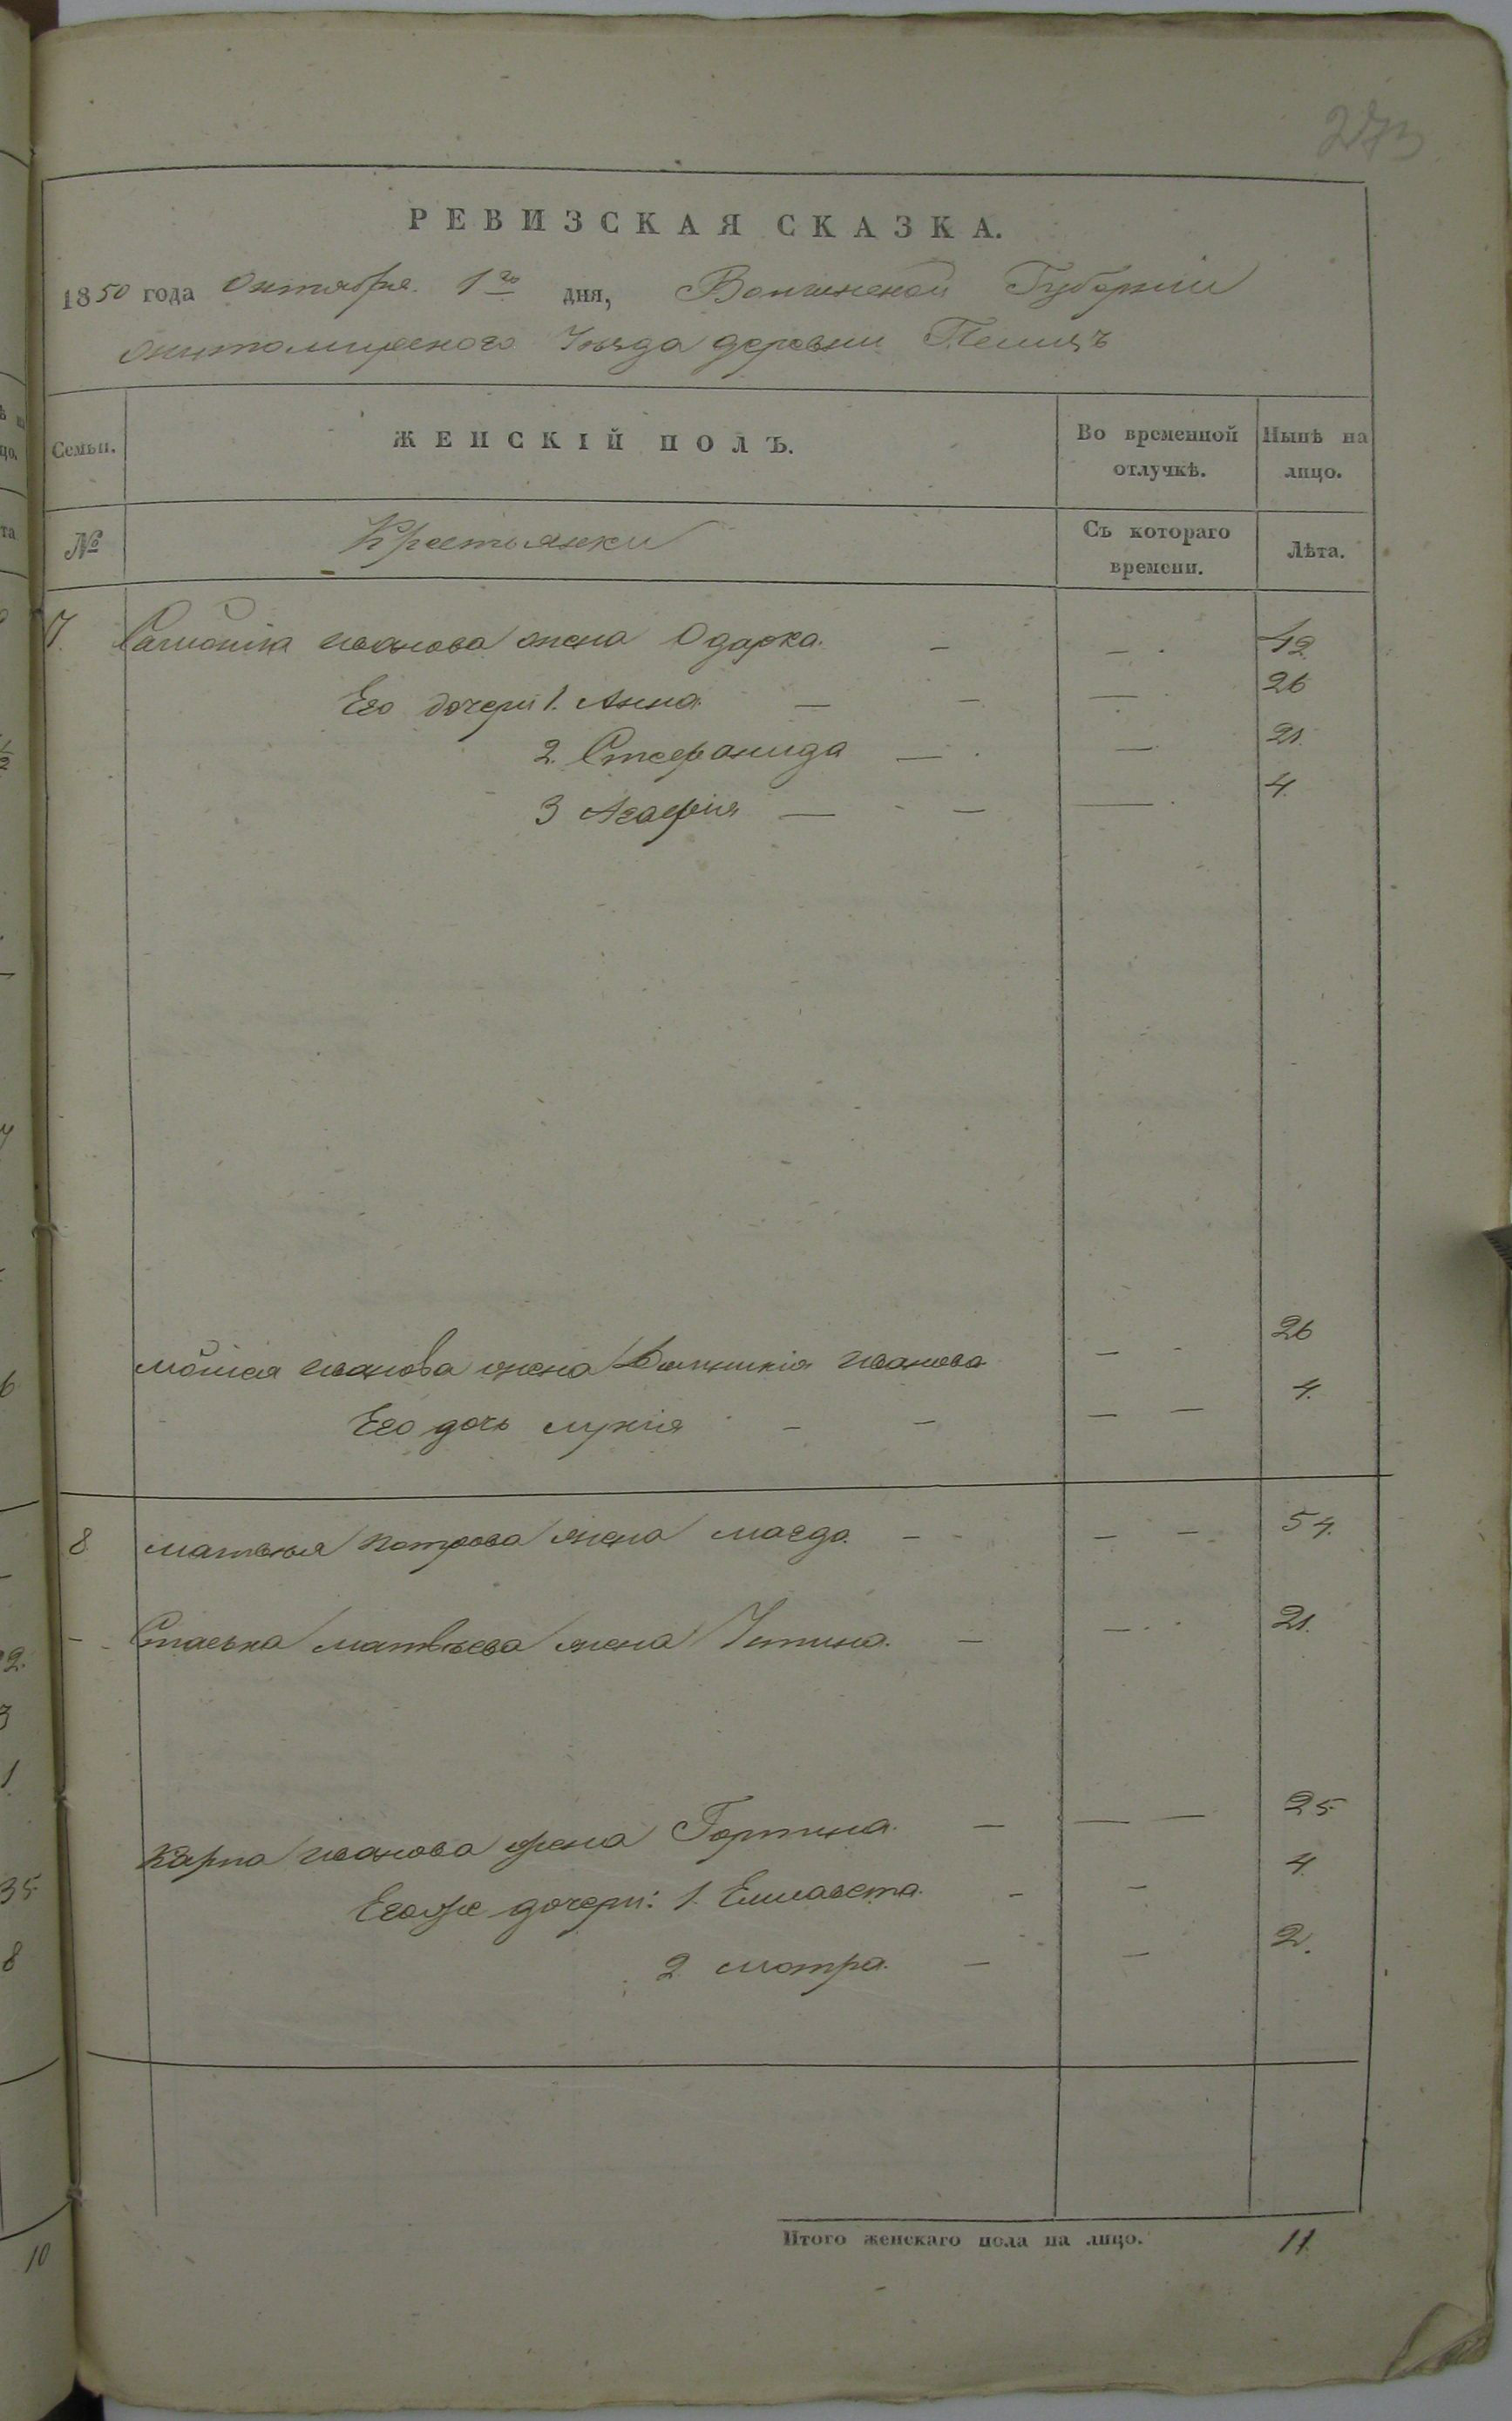 273
РЕВИЗСКАЯ СКАЗКА.
1850 года Октября 1го дня, Волынской Губерніи
Житомирского Уѣзда деревни Пелицъ
Семьи.
ЖЕНСКІЙ ПОЛЪ.
Во временной отлучкѣ.
Нынѣ на лицо.
№
Крестьянки
Съ котораго времени.
Лѣта.
7. Иванова жена Одарка. — — . 42
Его дочери 1. Анна — — — . 26
2. Стефанида — . — . 21.
3 Агафія — - — — . 4.
Мойсея Иванова жена Иванова — - 26
Его дочь Лукія - - — — 4.
8 Матвѣя Петрова жена Магда. - - — — 54.
- Стаська Матвѣева жена Устина. — — . . 21.
Карпа Иванова жена Горпина. — — — 25
Егоже дочери: 1. Елисавета. - — 4.
2 Мотра. — — 2.
Итого женскаго пола на лицо. 11.